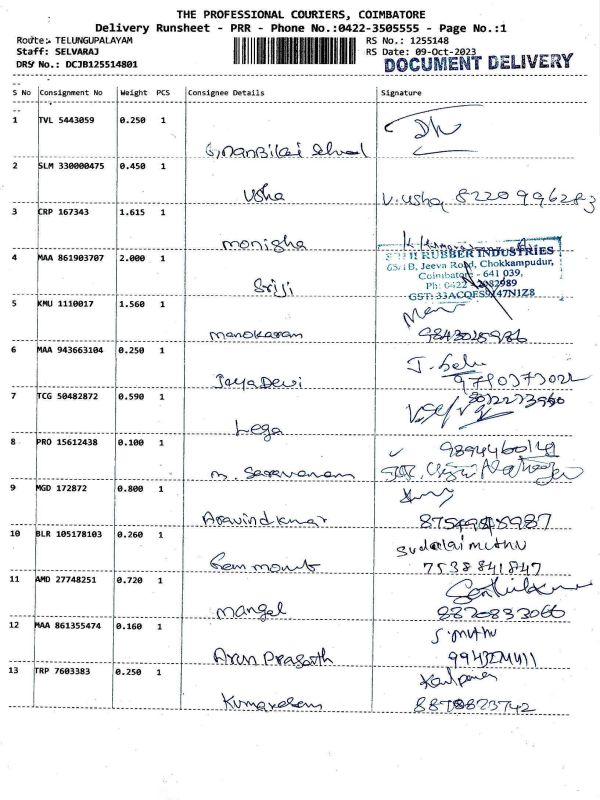 THE PROFESSIONAL COURIERS, COIMBATORE
Delivery Runsheet - PRR - Phone No.:0422-3505555 - Page No.:1
Route: TELUNGUPALAYAM RS No.: 1255148
Staff: SELVARAJ RS Date: 09-Oct-2023
DRS No.: DCJB125514801 DOCUMENT DELIVERY
S No Consignment No Weight PCS Consignee Details Signature
1 TVL 5443059 0.250 1
2 SLM 330000475 0.450 1
Usha V. Usha 8220996283
3 CRP 167343 1.615 1
monisha
4 MAA 861903707 2.000 1
RUBBER INDUSTRIES
65/1B, Jeeva Road, Chokkampudur,
Coimbatore - 641 039,
Sriji
GST: 33ACQFS9747N1Z8
5 KMU 1110017 1.560 1
manokaram
6 MAA 943663104 0.250 1
JayaDevi
7 TCG 50482872 0.590 1
Lega
8 PRO 15612438 0.100 1
9 MGD 172872 0.800 1
Aravindkumar
10 BLR 105178103 0.260 1
Sudalaimuthu
7538841847
11 AMD 27748251 0.720 1
mangal 8870833066
12 MAA 861355474 0.160 1
S. muthu
Arun Prasath
13 TRP 7603383 0.250 1
8870823742